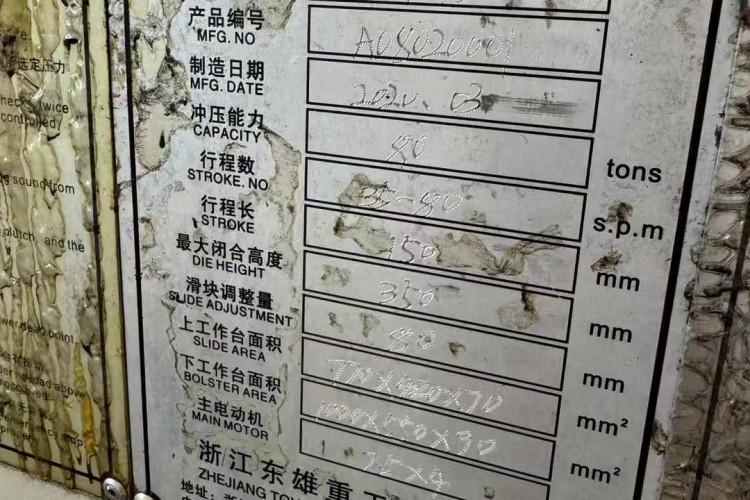 产品编号 A08020001
MFG. NO
制造日期 2020.03
MFG. DATE
冲压能力 80 tons
CAPACITY
行程数 35-80 s.p.m
STROKE. NO
行程长 150 mm
STROKE
最大闭合高度 350 mm
DIE HEIGHT
滑块调整量 80 mm
SLIDE ADJUSTMENT
上工作台面积 770X420X70 mm²
SLIDE AREA
下工作台面积 1000X550X90 mm²
BOLSTER AREA
主电动机 75X4
MAIN MOTOR
浙江东雄重
ZHEJIANG
地址:
选定压力
twice
controlled
sound from
clutch, and the
dead point
above